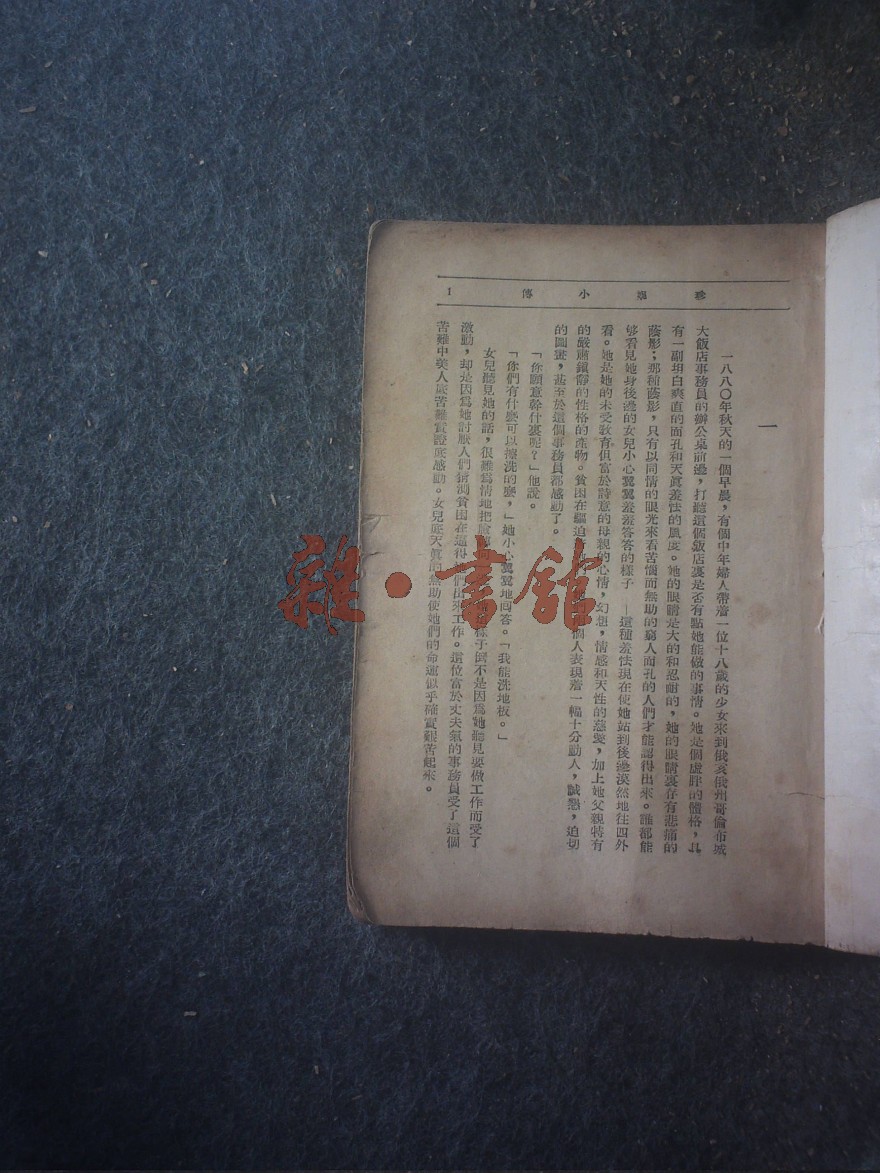 珍妮小傳
1
一
一八八〇年秋天的一個早晨，有個中年婦人帶着一位十八歲的少女來到俄亥俄州哥倫布城
大飯店事務員的辦公桌前邊，打聽這個飯店裏是否有點她能做的事情。她是個虛胖的體格，
有一副坦白爽直的面孔和天眞羞怯的風度。她的眼睛是大的和忍耐的，她的眼睛裏存有悲痛的
蔭影；那種蔭影，只有以同情的眼光來看苦惱而無助的窮人面孔的人們才能認得出來。誰都能
够看見她身後邊的女兒小心翼翼羞羞答答的樣子——這種羞怯現在使她站到後邊漠然地往四外
看。她是她的未受敎育但富於詩意的母親的心情，幻想，情感和天性的慈愛，加上她父親特有
的嚴肅鎭靜的性格的產物。貧困在驅迫 個人表現着一幅十分動人，誠懇，迫切
的圖畫，甚至於這個事務員都感動了。
「你願意幹什麼呢？」他說。
「你們有什麼可以擦洗的麼，」她小心翼翼地囘答。「我能洗地板。」
女兒聽見她的話，很難爲情地把臉 樣子倒不是因爲她聽見要做工作而受了
激動，却是因爲她討厭人們猜測貧困在逼得 們出來工作。這位富於丈夫氣的事務員受了這個
苦難中美人底苦難實證底感動。女兒底天眞的無助使她們的命運似乎確實艱苦起來。
雜·書館